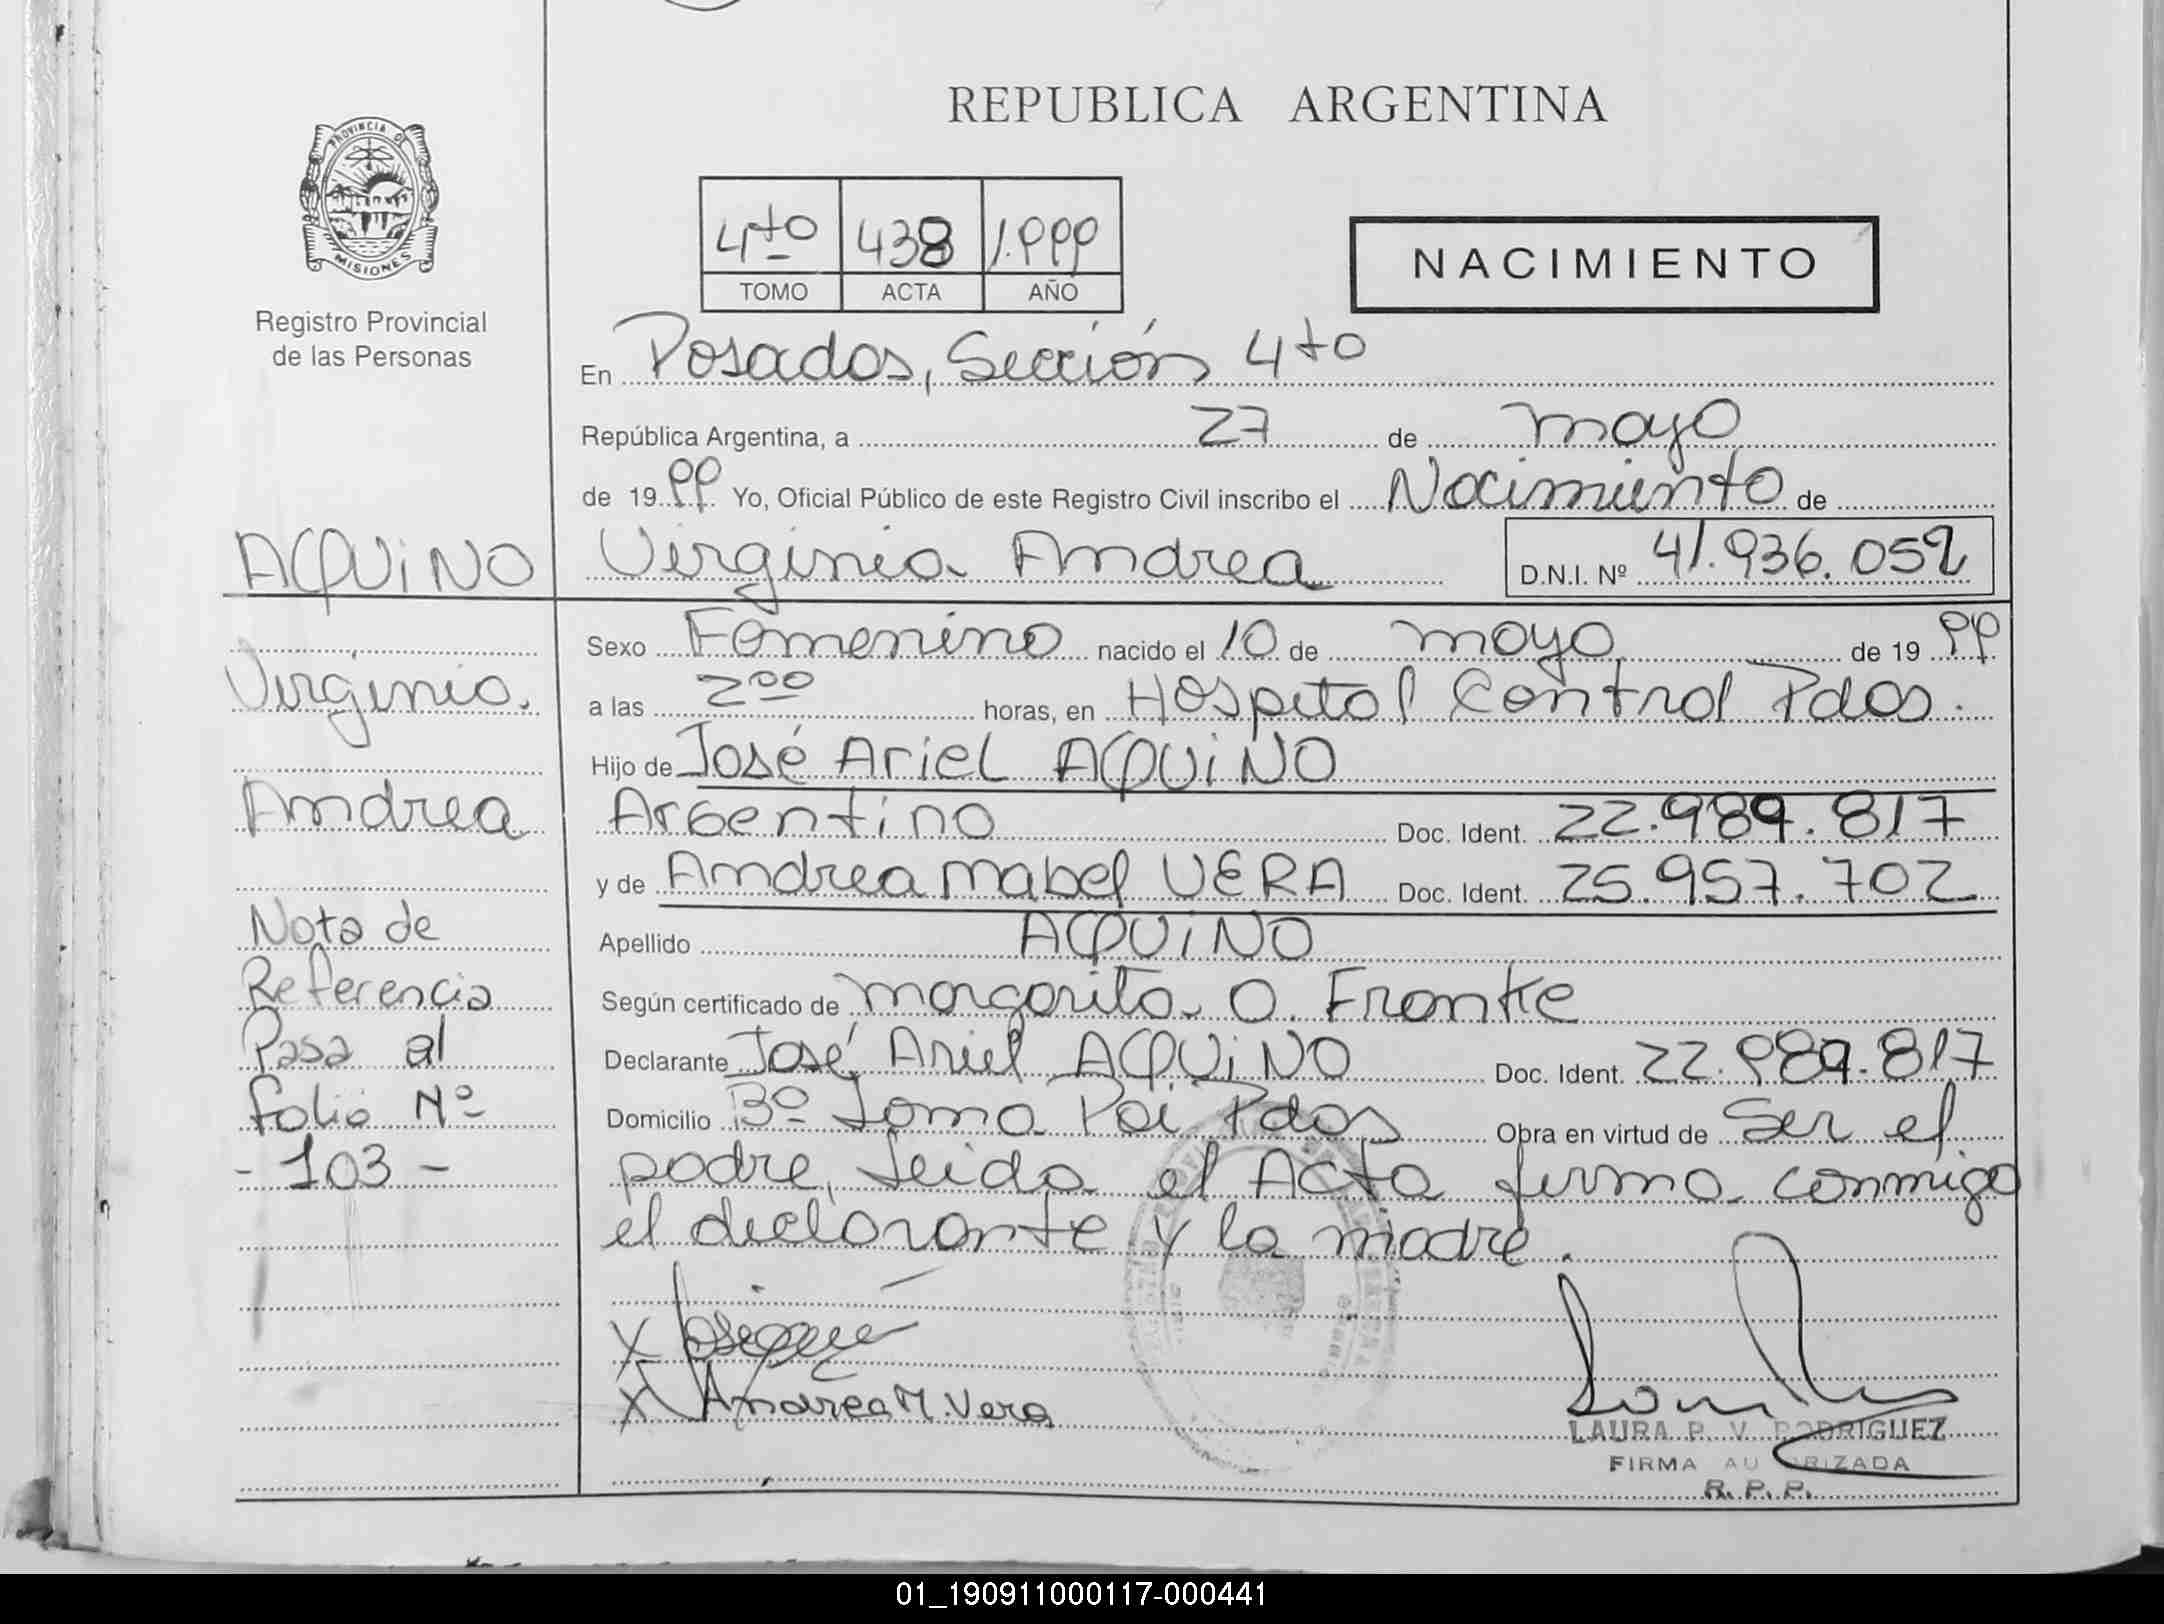 REPUBLICA ARGENTINA
PROVINCIA DE
MISIONES
Registro Provincial
de las Personas
4to 438 1.999
TOMO ACTA AÑO
NACIMIENTO
En Posadas, Sección 4to
República Argentina, a 27 de mayo
de 1999 Yo, Oficial Público de este Registro Civil inscribo el Nacimiento de
Virginia Andrea D.N.I. Nº 41.936.052
Sexo Femenino nacido el 10 de mayo de 1999
a las 2 00 horas, en Hospital Central Pdas.
Hijo de José Ariel AQUINO
Argentino Doc. Ident. 22.989.817
y de Andrea Mabel VERA Doc. Ident. 25.957.702
Apellido AQUINO
Según certificado de Margarita O. Franke
Declarante José Ariel AQUINO Doc. Ident. 22.989.817
Domicilio Bº Loma Poi Pdas Obra en virtud de Ser el
padre, Leida el Acta firma conmigo
el declarante y la madre.
X
X Andrea M. Vera
LAURA P. V. RODRIGUEZ
FIRMA AU RIZADA
R. P. P.
AQUINO
Virginia
Andrea
Nota de
Referencia
Pasa al
folio Nº
- 103 -
01_190911000117-000441